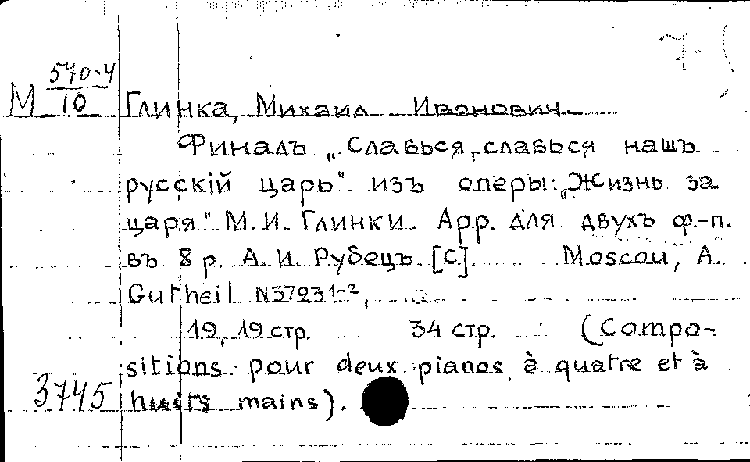 7-
М 570-4/10
Глинка, Михаил Иванович.
Финалъ „Славься, славься нашъ
русскій царь" изъ оперы: „Жизнь за
царя" М.И. Глинки. Арр. для двухъ ф-п.
въ 8 р. А. И. Рубецъ. [C]. Moscou, A.
Gutheil N37231-2,
19, 19 стр. 34 стр. (Compo-
sitions pour deux pianos à quatre et à
huits mains).
3745